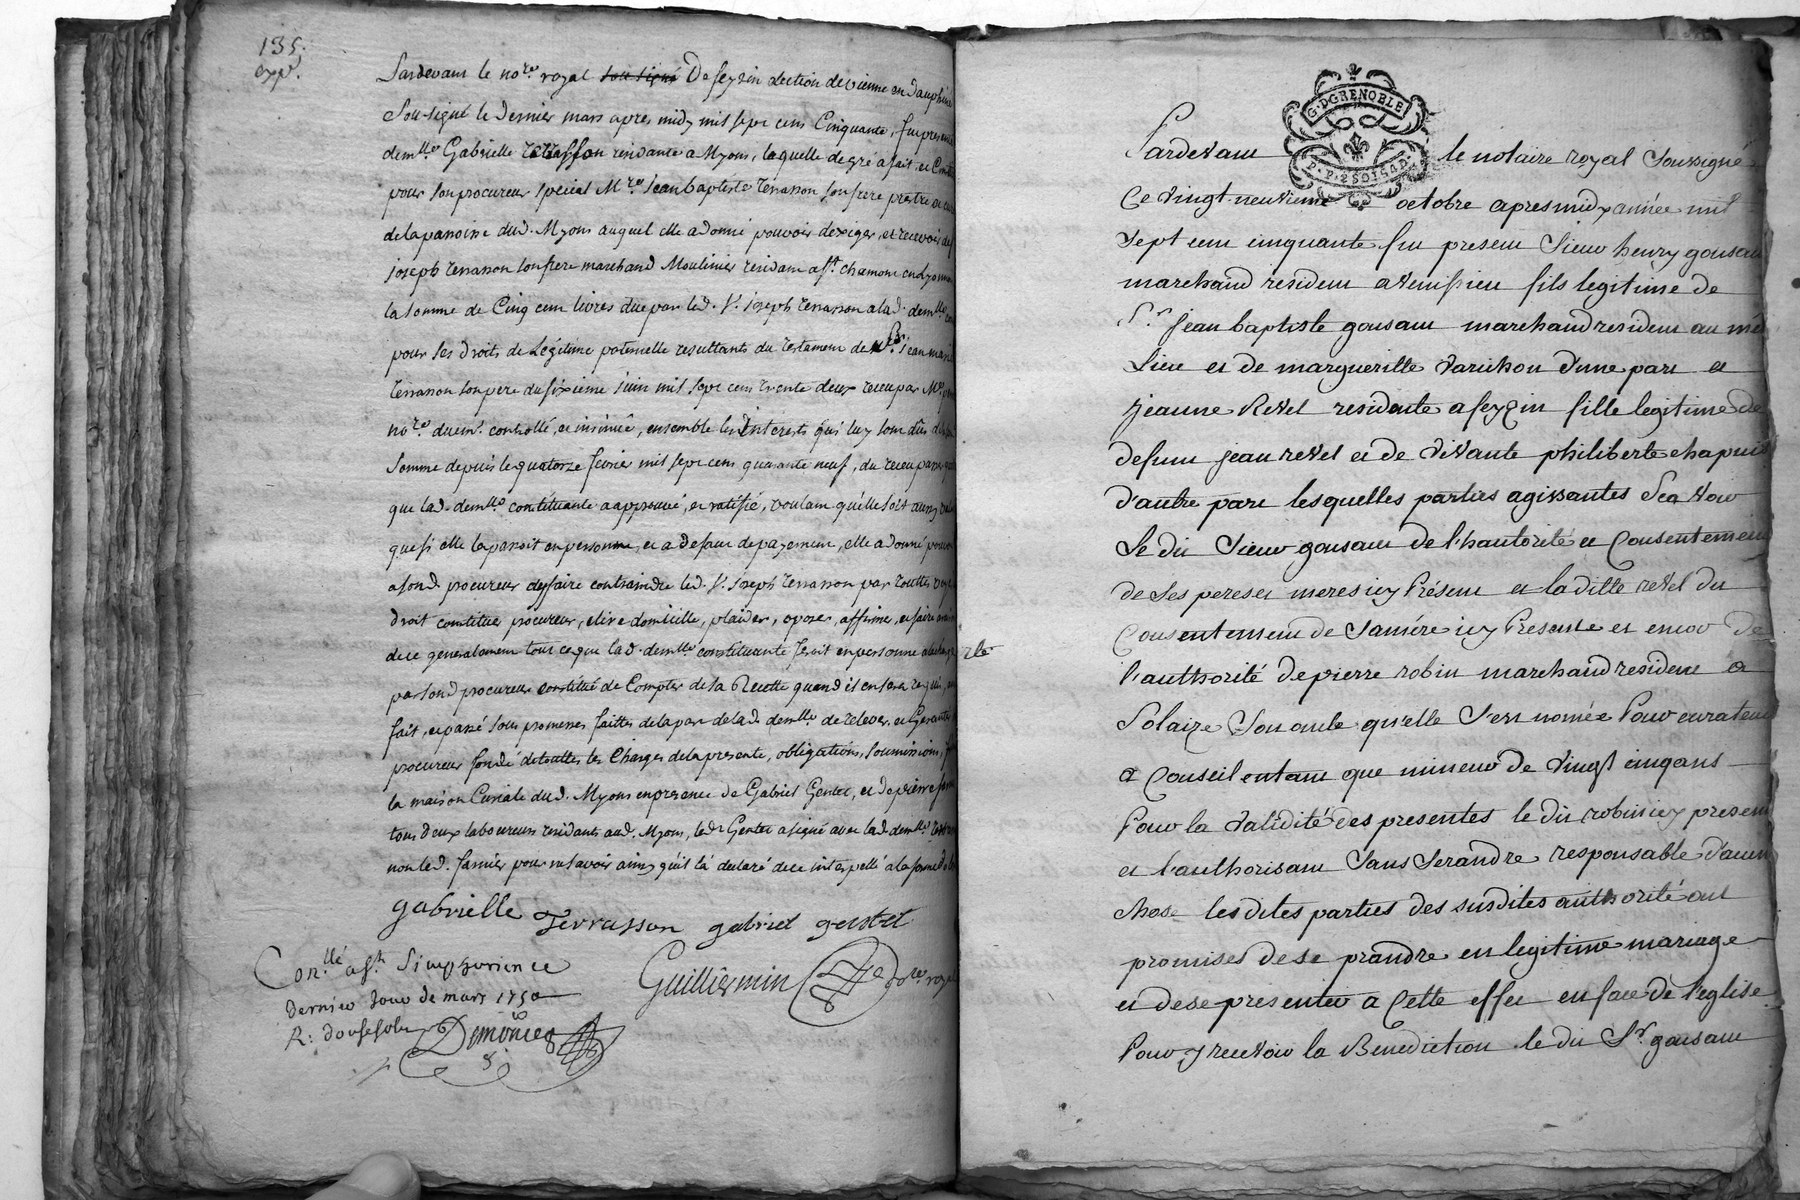 135.
exp.
Pardevant le no.re royal sou signé De feyzin election de vienne en dauphiné
Sou-signé le Dernier mars apres midy mil sept cens Cinquante, fut presente
dem.lle Gabrielle Terrasson residante a Myons, laquelle de gré a fait, et Constitué
pour son procureur special M.re Jean baptiste Terrasson son frere prestre et curé
de la parroisse dud. Myons auquel elle a donné pouvoir d'exiger, et recevoir du S.
joseph Terrasson son frere marchand Moulinier residant a S.t chamont en Lyonnois
la somme de Cinq cent livres due par led. S.r joseph Terrasson a lad. dem.lle
pour ses droits de Légitime paternelle resultants du testament de S.r Jean
Terrasson son pere du sixieme juin mil sept cens trente deux receu par M.e
no.re duem.t controllé, et insinué, ensemble les Interests qui luy sont dûs
somme depuis le quatorze fevrier mil sept cens quarante neuf, du receu passer
que lad. dem.lle constituante a approuvé, et ratifié, voulant qu'elle soit aussy
que si elle la passoit en personne, et a defaut de payement, elle a donné pouvoir
a sond. procureur de faire contraindre led. S.r joseph Terrasson par touttes
droit constitué procureur, elire domicille, plaider, oposer, affirmer, et faire
dire generalement tout ce que lad. dem.lle constituante feroit en personne a la charge
par sond procureur constitué de Compter de la Recette quand il en sera requis,
fait, et passé sous promesses faittes de la part de lad. dem.lle de relever, et Garantir
procureur fondé de touttes les Charges de la presente, obligations, soumissions,
la maison Curiale dud. Myons en presence de Gabriel Gentet, et de pierre
tous deux laboureurs residants aud. Myons, led. Gentet a signé avec lad. dem.lle
non led. farnier pour ne savoir ainsy qu'il l'a declaré de ce interpellé a la forme
gabrielle Terrasson gabriel gentet
Con.llé a S.t Simphorien ce
dernier Jour de mars 1750
R: douse sols
Guilliermin no.re royal
Pardevant le notaire royal Soussigné
G. D GRENOBLE
Ce vingt-neuvieme octobre apres midy année mil
Sept cent cinquante fut present Sieur henry gonsaut
marchand resident a venissieu fils legitime de
S.r jean baptiste gonsaut marchand resident au mé
Lieu et de margueritte varichon d'une part et
jeanne Revel residente a feyzin fille legitime de
defunt jean revel et de vivante philiberte chapuis
d'autre part lesquelles parties agissantes Scavoir
Le dit Sieur gonsaut de l'hautorité et Consentement
de ses peres et meres icy Présent et laditte revel du
Consentement de Sa mére icy Presente et encor de
l'authorité de pierre robin marchand resident a
Solaize Son oncle qu'elle S'est nomée Pour curateur
et Conseil entant que mineur de vingt cinq ans
Pour la validité des presentes le dit robin icy present
et l'authorisant Sans Se randre responsable d'aucune
chose lesdites parties des susdites authorité ont
promises de se prandre en legitime mariage
et de se presenter a Cette effet en face de l'eglise
Pour y recevoir la Benediction le dit S.r gonsaut